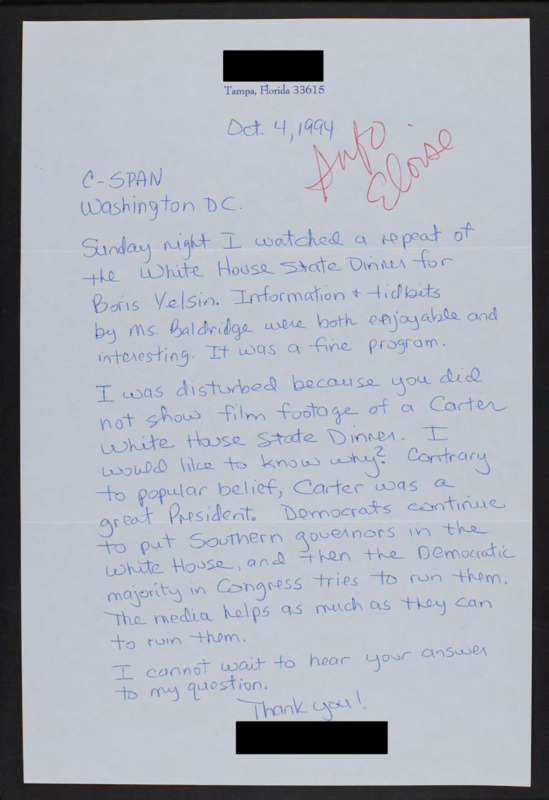 Tampa, Florida 33615
Oct. 4, 1994
Info
Eloise
C-SPAN
Washington DC.
Sunday night I watched a repeat of
the White House State Dinner for
Boris Yelsin. Information + tidbits
by Ms. Baldridge were both enjoyable and
interesting. It was a fine program.
I was disturbed because you did
not show film footage of a Carter
White House State Dinner. I
would like to know why? Contrary
to popular belief, Carter was a
great President. Democrats continue
to put Southern governors in the
White House, and then the Democratic
majority in Congress tries to run them.
The media helps as much as they can
to ruin them.
I cannot wait to hear your answer
to my question.
Thank you!